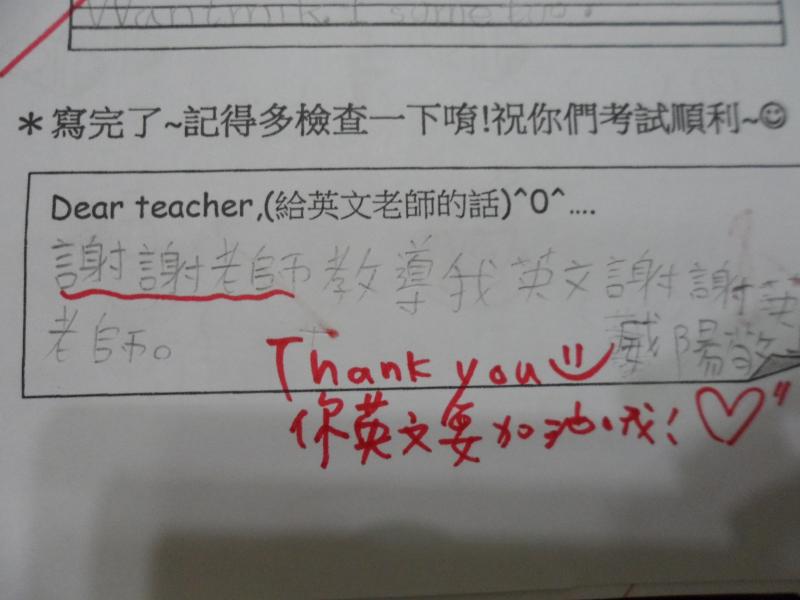 Want milk. I some
＊寫完了~記得多檢查一下唷!祝你們考試順利~☺
Dear teacher,(給英文老師的話)^0^....
謝謝老師教導我英文謝謝英
老師。
戴陽敬
Thank you
你英文要加油哦!♡